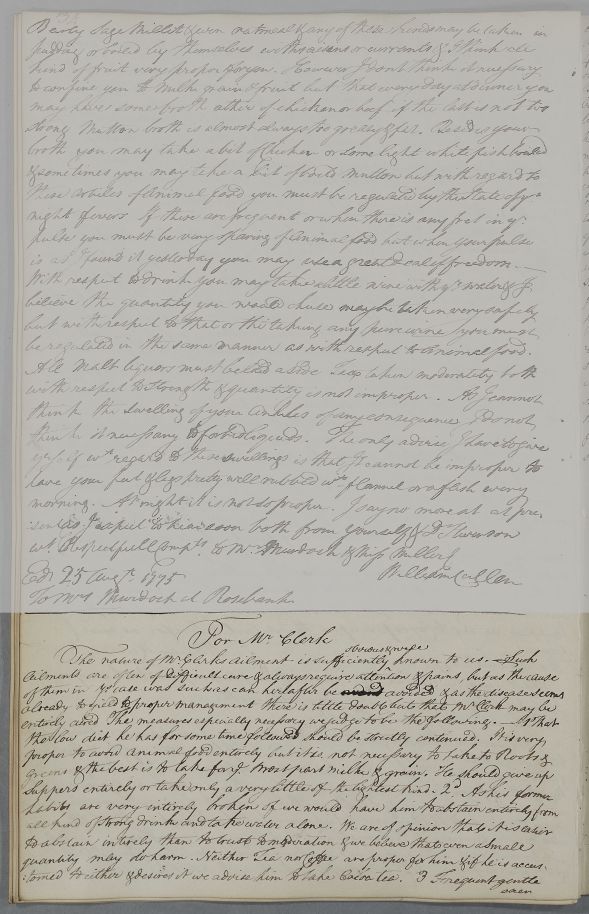 Barley Sage Millet & even oatmeal & any of these kinds may be taken in
pudding or boiled by themselves with raisins or currants & I think all
kind of fruit very proper for you. However I dont think it necessary
to confine you to milk grain & fruit but that every day at dinner you
may have some broth either of chicken or beef if the last is not too
strong Mutton broth is almost always too greasy & fat. Besides your
broth you may take a bit of Chicken or some light white fish boiled
& sometimes you may take a bit of boild Mutton but with regard to
these articles of Animal food you must be regulated by the state of yr
night fevers if there are frequent or when there is any fret in yr
pulse you must be very sparing of animal food but when your pulse
is as I found it yesterday you may use a great deal of freedom. —
With respect to drink you may take a little wine with yr water & I
believe the quantity you would chuse may be taken very safely
but with respect to that or the taking any pure wine you must
be regulated in the same manner as with respect to Animal food.
All Malt liquors must be laid aside Tea taken moderately both
with respect to strength & quantity is not improper. As I cannot
think the swelling of your Ankles of any consequence I do not
think it necessary to forbid liquids. The only advice I have to give
with regard to these swellings is that it cannot be improper to
have your feet & legs pretty well rubbed wt flannel or a flesh every
morning. At night it is not so proper. I say no more at at pre:
:sent as I expect to hear soon both from yourself & Dr Stevenson
wt Respectfull Compts to Mr Murdoch & Miss Millers
William Cullen
Edr 25 Augt. 1775
To Mrs Murdoch at Rosebank
For Mr. Clerk
obvious & wise
The nature of Mr. Clerks ailment is sufficiently known to us. Such
Ailments are often of difficult cure & always require attention & pains, but as the cause
of them in ys case was such as can hereafter be avoided & as the disease seems
already to yield to proper management there is little doubt but that Mr Clerk may be
entirely cured. The measures especially necessary we judge to be the following. 1st That
the low diet he has for some time followed should be strictly continued. It is very
proper to avoid animal food entirely but it is not necessary to take to Roots &
greens & the best is to take for ye most part milk & grain. He should give up
Suppers entirely or take only a very little of the lightest kind. 2d As his former
habits are very entirely broken of we would have him to abstain entirely from
all kind of strong drink and take water alone. We are of opinion that it is easier
to abstain entirely than to trust to moderation & we believe that even a small
quantity may do harm. Neither Tea nor Coffee are proper for him & if he is accus:
:tomed to either & desires it we advise him to take Cocoa tea. 3 Frequent gentle
exer